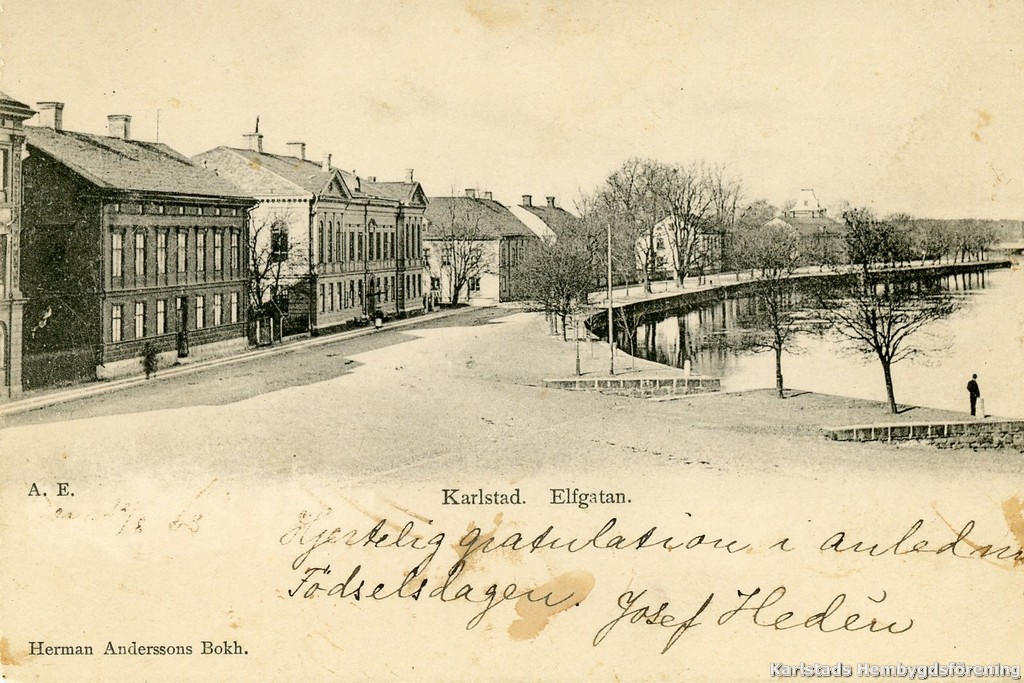 A. E.
Karlstad. Elfgatan.
Hjertelig gratulation i anledn
Födselsdagen. Josef Hedén
Herman Anderssons Bokh.
Karlstads Hembygdsförening